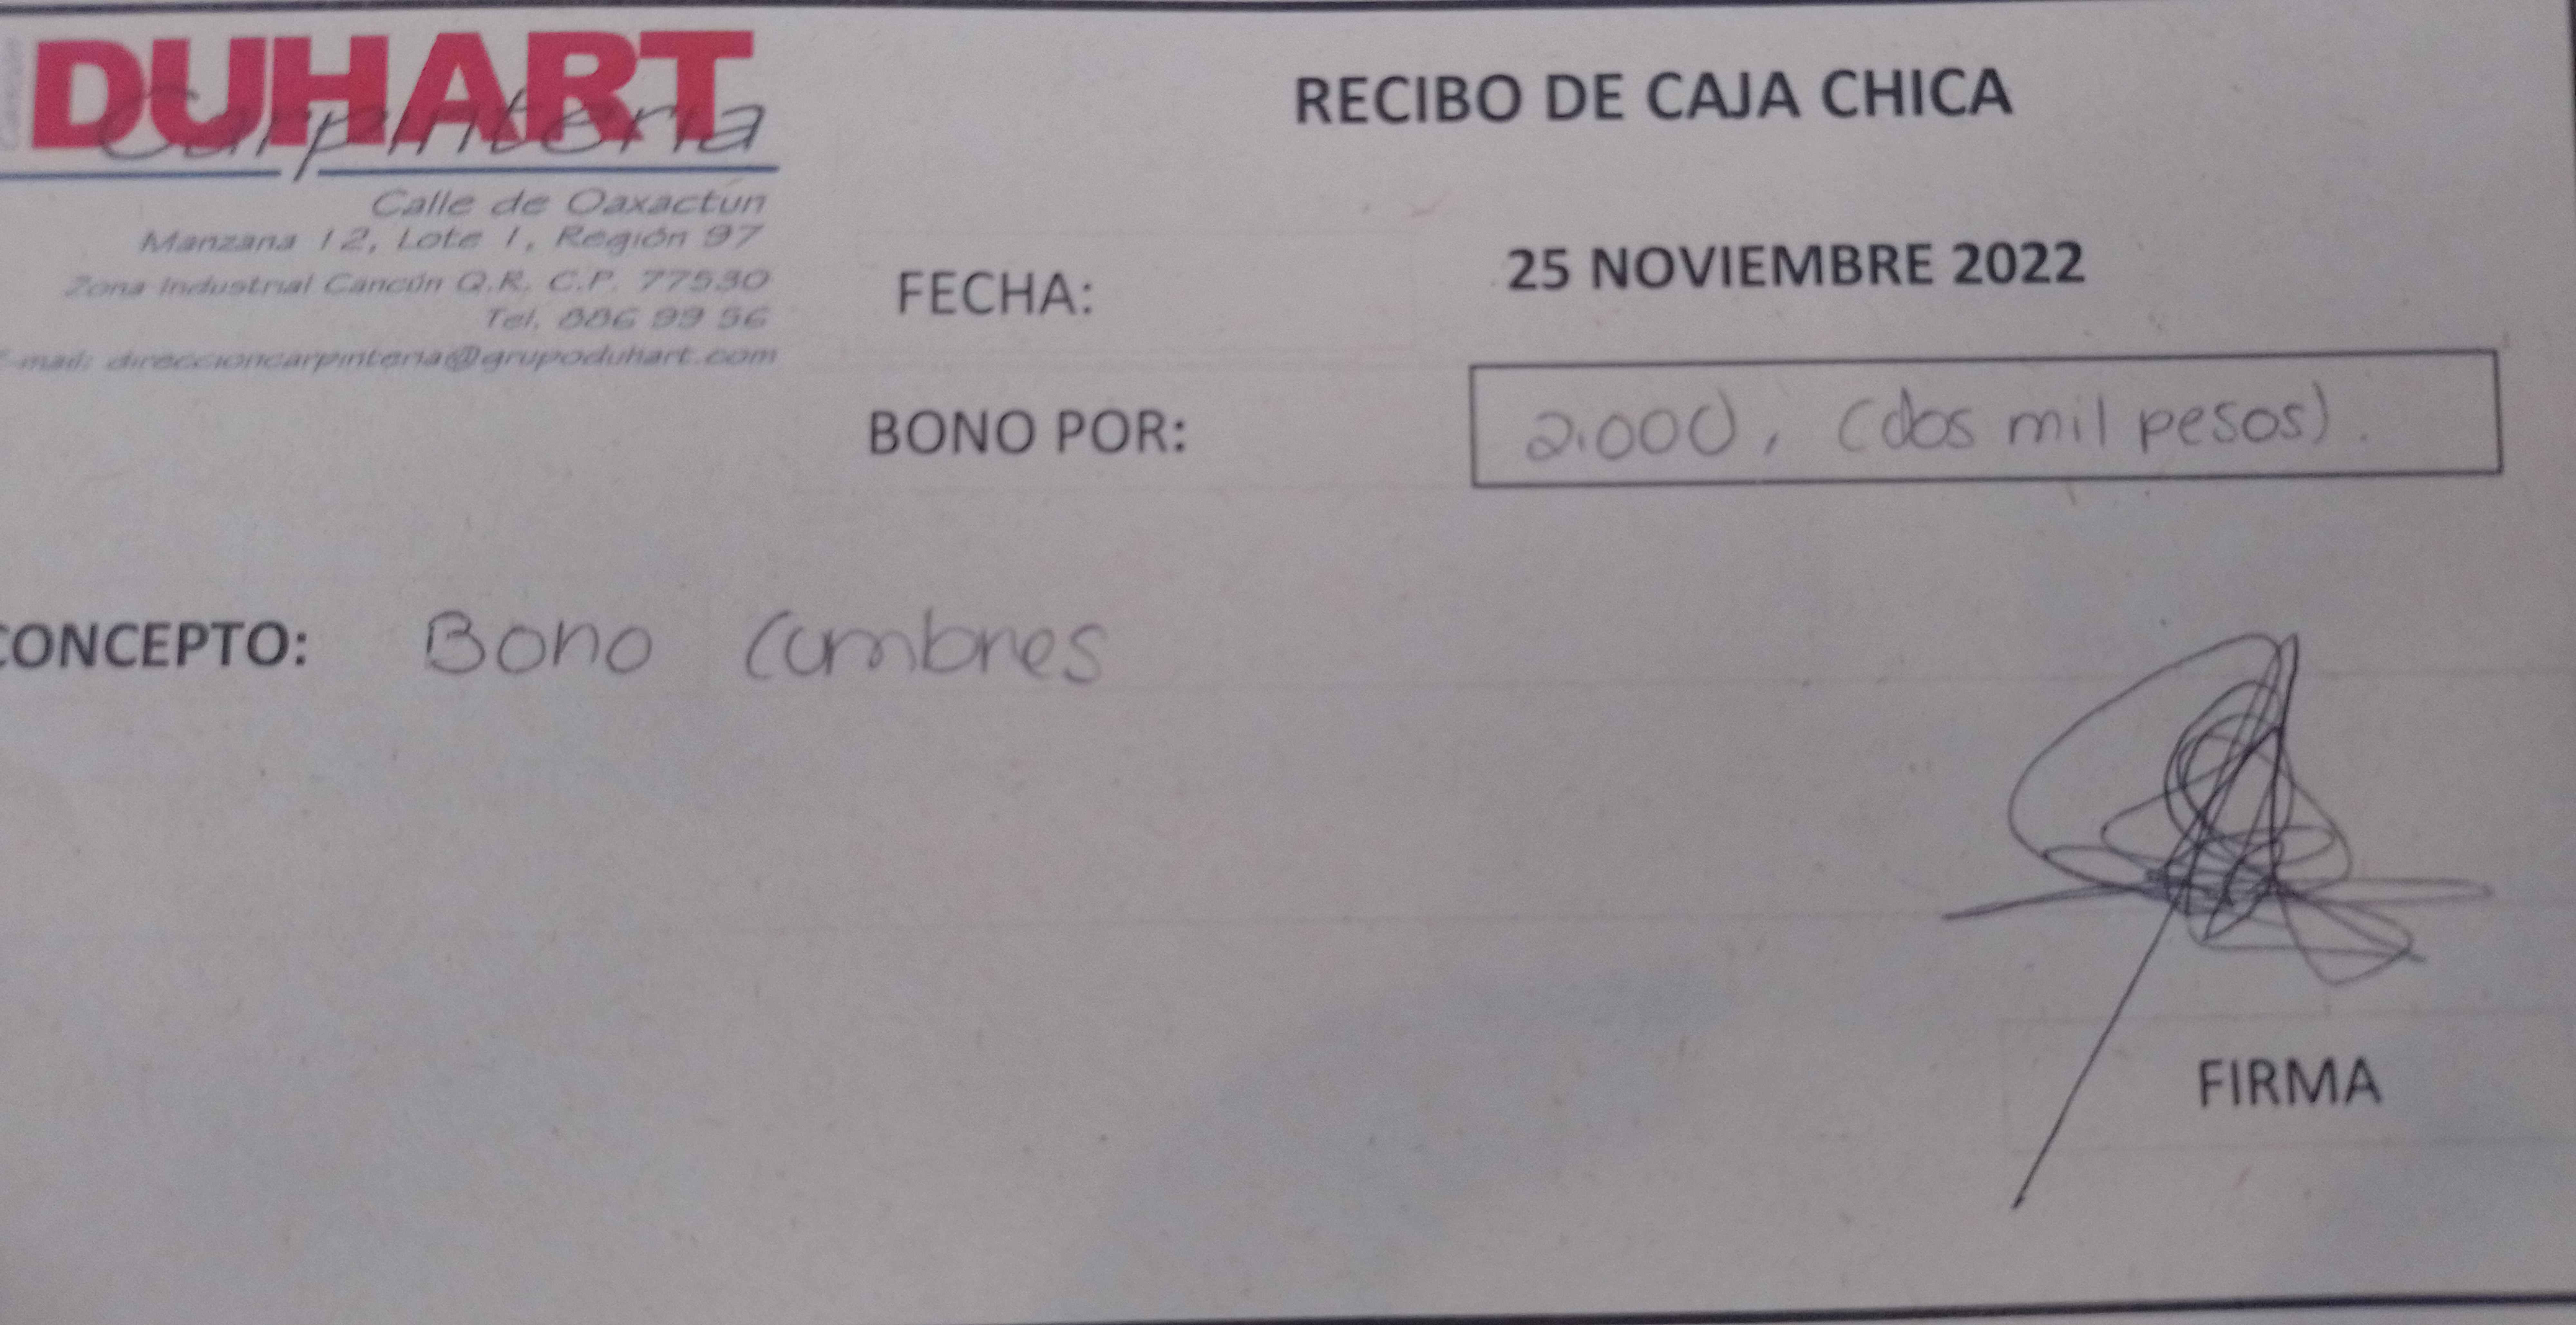 DUHART
Carpintería
Calle de Oaxactún
Manzana 12, Lote 1, Región 97
Zona Industrial Cancún Q.R. C.P. 77530
Tel. 886 99 56
E-mail: direccioncarpinteria@grupoduhart.com
RECIBO DE CAJA CHICA
FECHA: 25 NOVIEMBRE 2022
BONO POR: 2.000, (dos mil pesos).
CONCEPTO: Bono Cumbres
FIRMA